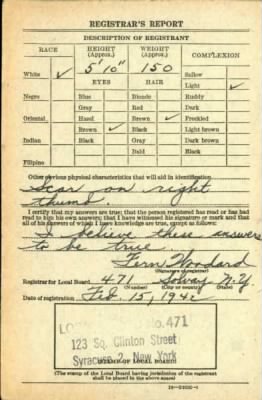 REGISTRAR'S REPORT
DESCRIPTION OF REGISTRANT
RACE
HEIGHT (Approx.)
WEIGHT (Approx.)
COMPLEXION
5' 10" 150
White ✓
Sallow
EYES HAIR
Light ✓
Negro Blue Blonde Ruddy
Gray Red Dark
Oriental Hazel Brown ✓ Freckled
Brown ✓ Black Light brown
Indian Black Gray Dark brown
Bald Black
Filipino
Other obvious physical characteristics that will aid in identification
Scar on right
thumb.
I certify that my answers are true; that the person registered has read or has had
read to him his own answers; that I have witnessed his signature or mark and that
all of his answers of which I have knowledge are true, except as follows:
I believe these answers
to be true.
Fern Woodard
(Signature of registrar)
Registrar for Local Board 471 Solvay N.Y.
(City or county) (State)
Date of registration Feb. 15, 1942
No. 471
123 So. Clinton Street
Syracuse 2, New York
(STAMP OF LOCAL BOARD)
(The stamp of the Local Board having jurisdiction of the registrant
shall be placed in the above space)